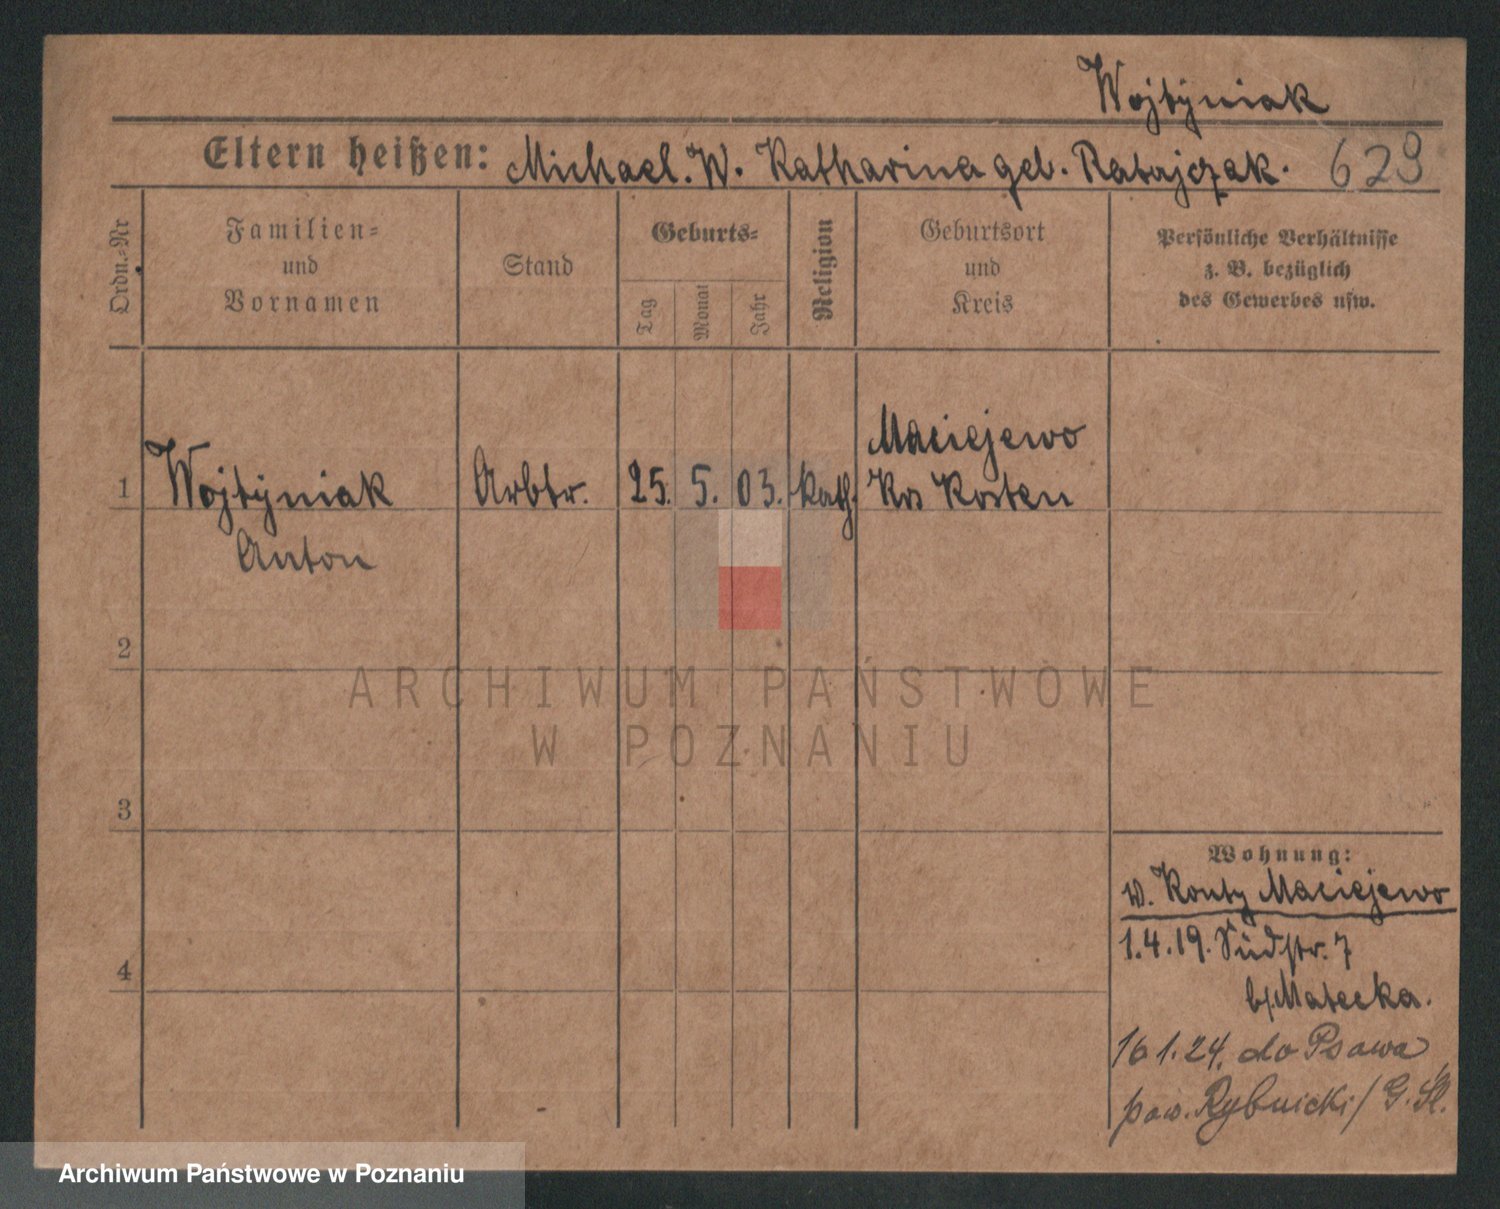 Wojtyniak
Eltern heißen: Michael. W. Katharina geb. Ratajczak. 629
Ordn.-Nr
Familien-
und
Vornamen
Stand
Geburts-
Tag
Monat
Jahr
Religion
Geburtsort
und
Kreis
Persönliche Verhältnisse
z. B. bezüglich
des Gewerbes usw.
1 Wojtyniak Arbtr. 25. 5. 03. kath. Maciejewo
Krs Kosten
Anton
2
ARCHIWUM PAŃSTWOWE
W POZNANIU
3
Wohnung:
w. Konty Maciejewo
1.4.19. Südstr. 7
b/Matecka.
4
16 1.24. do Psawa
pow. Rybnicki/G. Śl.
Archiwum Państwowe w Poznaniu